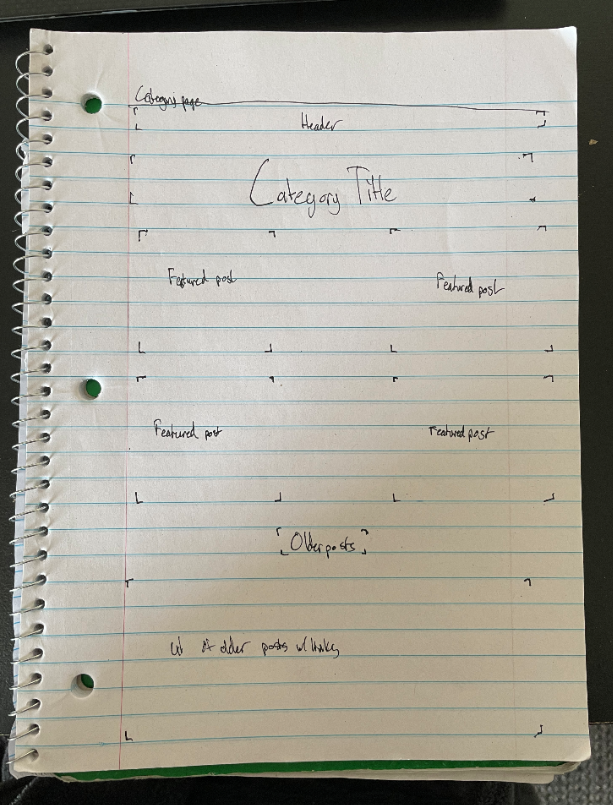 Category page
Header
Category Title
Featured post
Featured post
Featured post
Featured post
Older posts
older posts w/ links